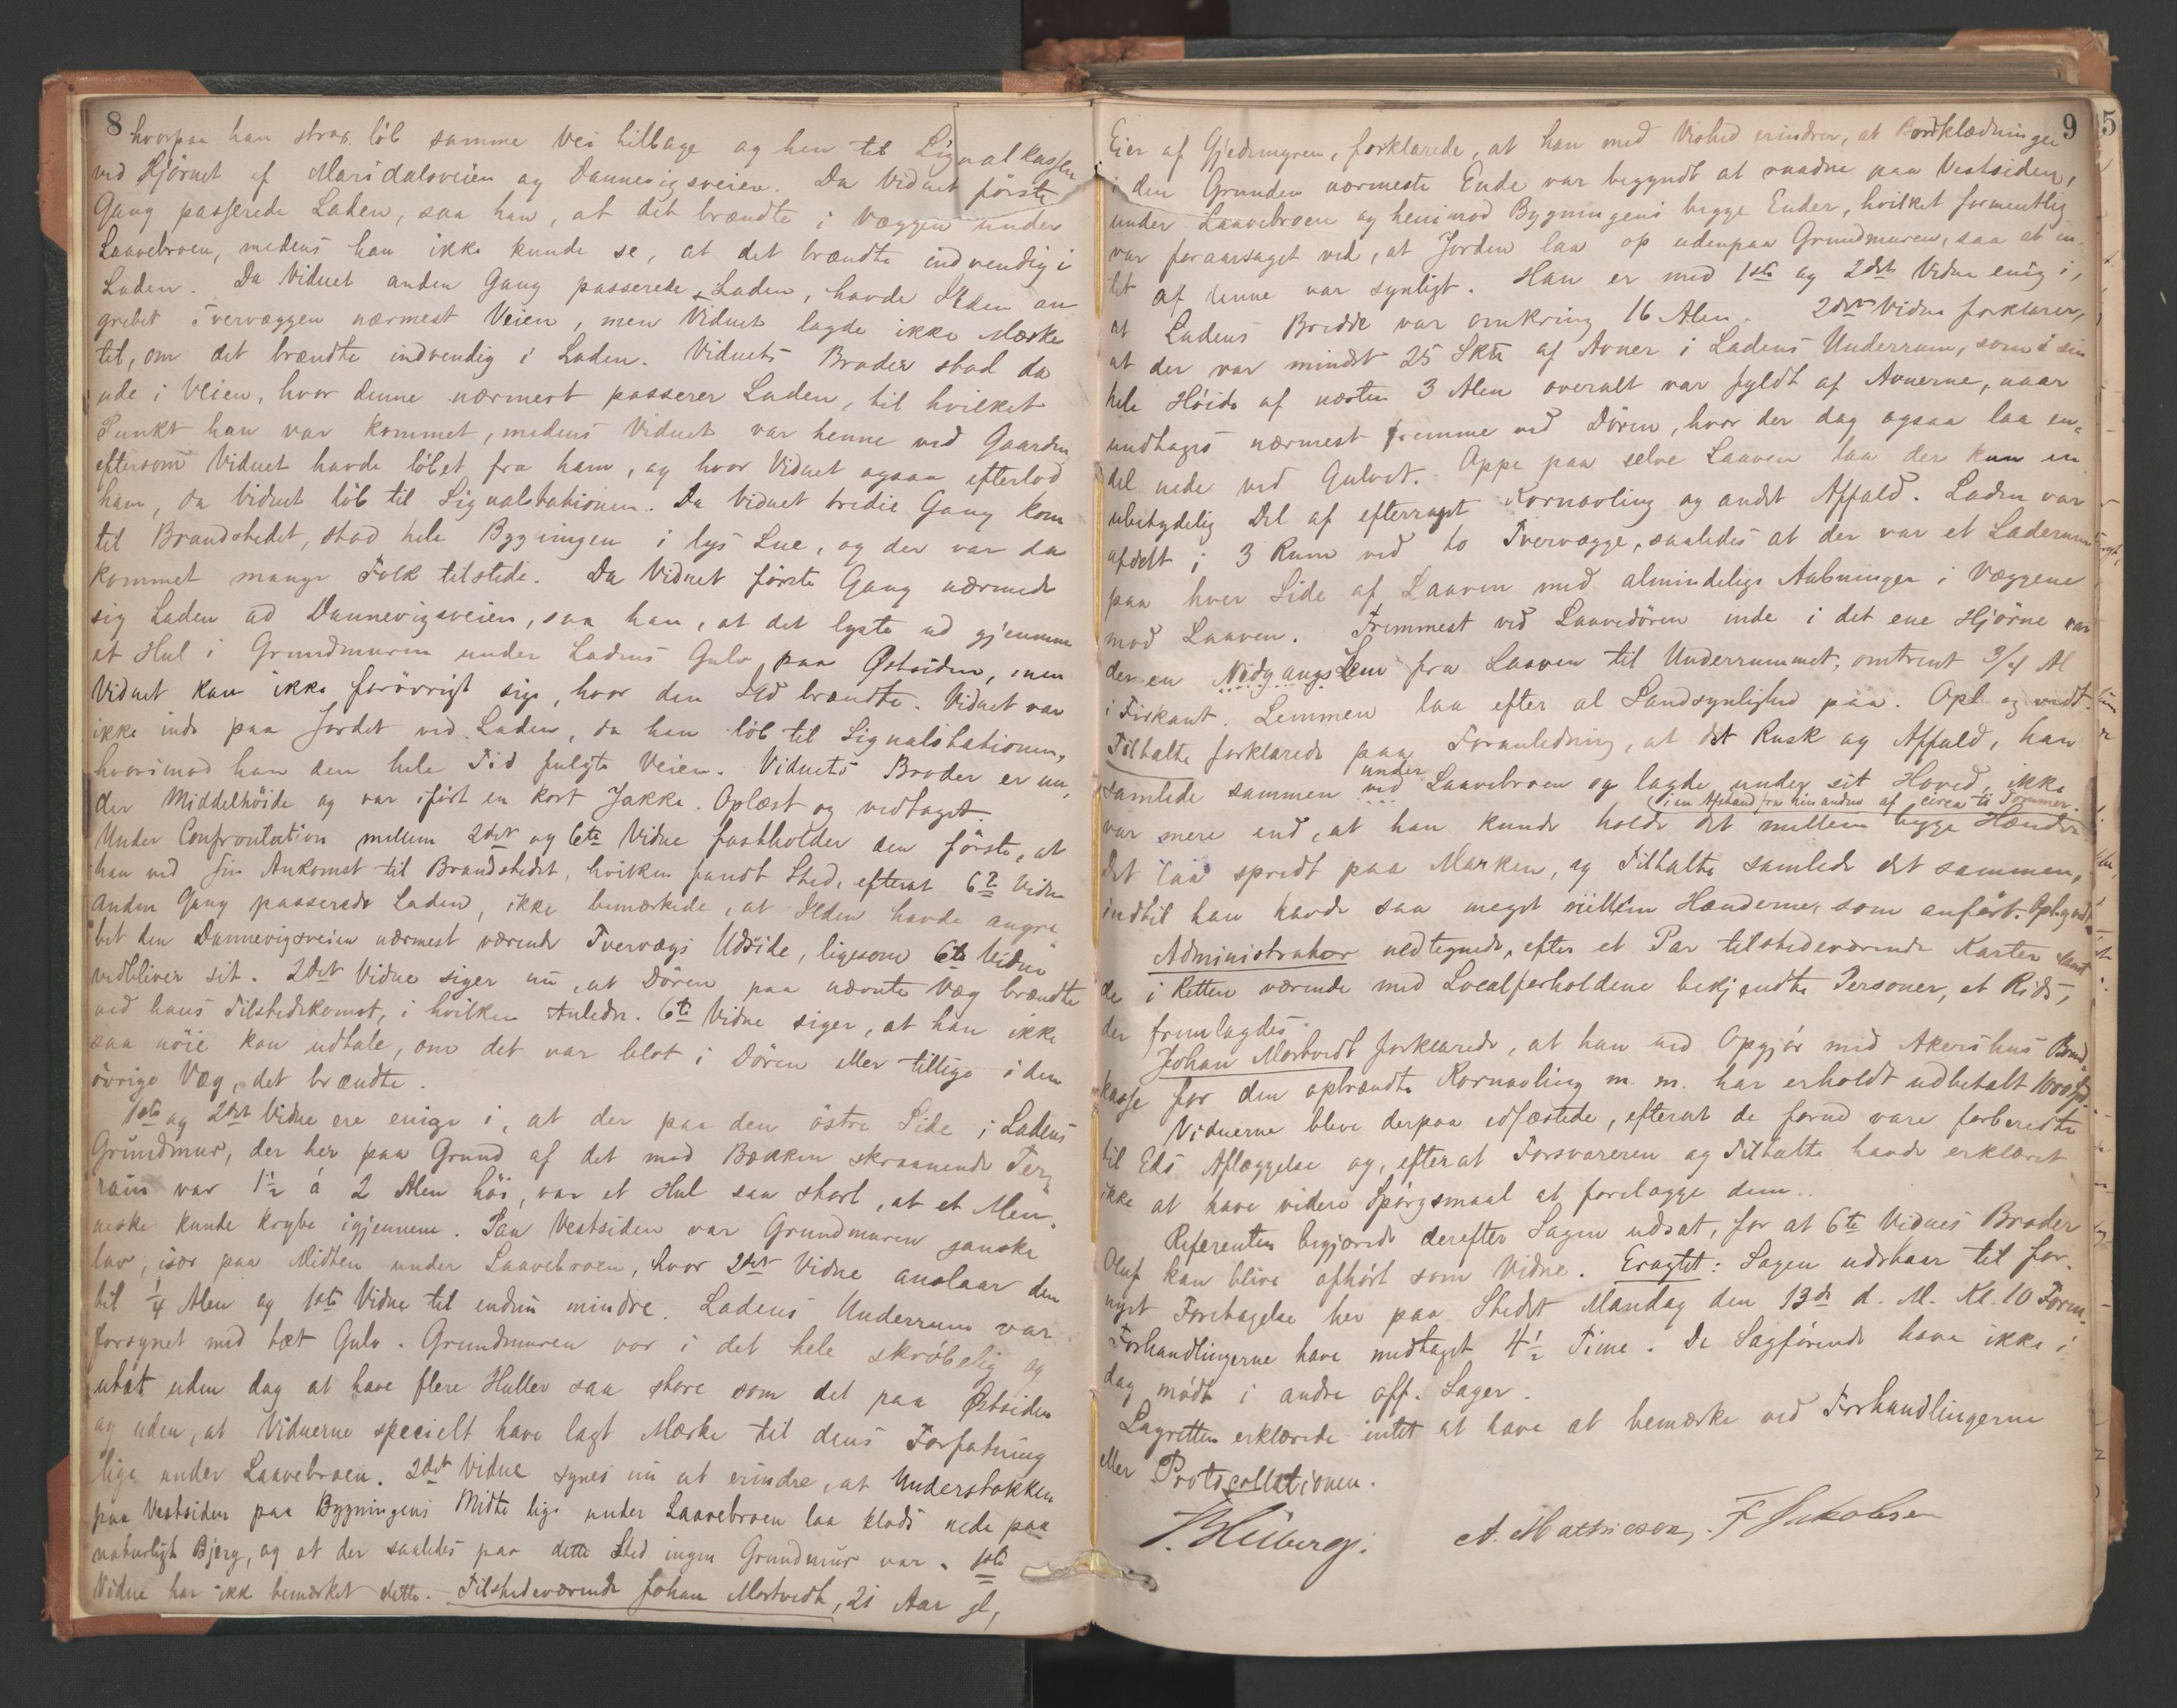 8
hvorpaa han strax løb samme Vei tilbage og hen til Signalkassen
ved Hjørnet af Maridalsveien og Dannevigsveien. Da Vidnet første
Gang passerede Laden, saa han, at det brændte i Væggen under
Laavebroen, medens han ikke kunde se, at det brændte indvendig i
Laden. Da Vidnet anden Gang passerede Laden, havde Ilden an-
grebet Tvervæggen nærmest Veien, men Vidnet lagde ikke Mærke
til, om det brændte indvendig i Laden. Vidnets Broder stod da
ude i Veien, hvor denne nærmest passerer Laden, til hvilket
Punkt han var kommet, medens Vidnet var henne ved Gaarden
eftersom Vidnet havde løbet fra ham, og hvor Vidnet ogsaa efterlod
ham, da Vidnet løb til Signalstationen. Da Vidnet tredie Gang kom
til Brandstedet, stod hele Bygningen i lys Lue, og der var da
kommet mange Folk tilstede. Da Vidnet første Gang nærmede
sig Laden ad Dannevigsveien, saa han, at det lyste ud gjennem
et Hul i Grundmuren under Ladens Gulv paa Østsiden, men
Vidnet kan ikke forøvrigt sige, hvor den Ild brændte. Vidnet var
ikke inde paa Jordet ved Laden, da han løb til Signalstationen,
hvorimod han den hele Tid fulgte Veien. Vidnets Broder er un-
der Middelhøide og var iført en kort Jakke. Oplæst og vedtaget.
Under Confrontation mellem 2det og 6te Vidne fastholder den første, at
han ved sin Ankomst til Brandstedet, hvilken fandt Sted, efterat 6te Vidne
anden Gang passerede Laden, ikke bemærkede, at Ilden havde angre-
bet den Dannevigsveien nærmest værende Tvervægs Udside, ligesom 6te Vidne
vedbliver sit. 2det Vidne siger nu, at Døren paa nævnte Væg brændte
ved hans Tilstedekomst, i hvilken Anledn. 6te Vidne siger, at han ikke
saa nøie kan udtale, om det var blot i Døren eller tillige i den
øvrige Væg, det brændte.
1ste og 2det Vidne ere enige i, at der paa den østre Side i Ladens
Grundmur, der her paa Grund af det mod Bækken skraanende Ter-
rain var 1½ á 2 Alen høi, var et Hul saa stort, at et Men-
neske kunde krybe igjennem. Paa Vestsiden var Grundmuren ganske
lav, især paa Midten under Laavebroen, hvor 2det Vidne anslaar den
til ¼ Alen og 1ste Vidne til endnu mindre. Ladens Underrum var
forsynet med tæt Gulv. Grundmuren var i det hele skrøbelig og
utæt uden dog at have flere Huller saa store som det paa Østsiden
og uden, at Vidnerne specielt have lagt Mærke til dens Forfatning
lige under Laavebroen. 2det Vidne synes nu at erindre, at Understokken
paa Vestsiden paa Bygningens Midte lige under Laavebroen laa klods nede paa
naturligt Bjerg, og at der saaledes paa dette Sted ingen Grundmur var. 1ste
Vidne har ikke bemærket dette. Tilstedeværende Johan Mortvedt, 21 Aar gl,
9
Eier af Gjedemyren, forklarede, at han med Vished erindrer, at Bordklædningen
i den Grunden nærmeste Ende var begyndt at raadne paa Vestsiden,
under Laavebroen og henimod Bygningens begge Ender, hvilket formentlig
var foraarsaget ved, at Jorden laa op udenpaa Grundmuren, saa at in-
tet af denne var synligt. Han er med 1ste og 2det Vidne enig i,
at Ladens Bredde var omkring 16 Alen. 2det Vidne forklarer,
at der var mindst 25 Skth af Avner i Ladens Underrum, som i sin
hele Høide af næsten 3 Alen overalt var fyldt af Avnerne, naar
undtages nærmest fremme ved Døren, hvor der dog ogsaa laa en-
del nede ved Gulvet. Oppe paa selve Laaven laa der kun en
ubetydelig Del af efterraget Kornavling og andet Affald. Laden var
afdelt i 3 Rum ved to Tvervægge, saaledes at der var et Laderum
paa hver Side af Laaven med almindelige Aabninger i Væggene
mod Laaven. Fremmest ved Laavedøren inde i det ene Hjørne var
der en Nedgangslem fra Laaven til Underrummet, omtrent 3/4 Al
i Firkant. Lemmen laa efter al Sandsynlighed paa. Opl. og vedt.
Tiltalte forklarede paa Foranledning, at det Rusk og Affald, han
under
samlede sammen ved Laavebroen og lagde under sit Hoved, ikke
i en Afstand fra hinanden af circa ti Tommer.
var mere end, at han kunde holde det mellem begge Hænder
Det laa spredt paa Marken, og Tiltalte samlede det sammen,
indtil han havde saa meget mellem Hænderne, som anført. Opl. og vedt.
Administrator nedtegnede, efter et Par tilstedeværende Karter samt
de i Retten værende med Localforholdene bekjendte Personer, et Rids,
der fremlagdes.
Johan Mortvedt forklarede, at han ved Opgjør med Akershus Brand-
kasse for den opbrændte Kornavling m. m. har erholdt udbetalt 1000 Kr.
Vidnerne bleve derpaa edfæstede, efterat de forud vare forberedte
til Eds Aflæggelse og, efterat Forsvareren og Tiltalte havde erklæret
ikke at have videre Spørgsmaal at forelægge dem.
Referenten begjærede derefter Sagen udsat, for at 6te Vidnes Broder
Oluf kan blive afhørt som Vidne. Eragtet: Sagen udstaar til for-
nyet Foretagelse her paa Stedet Mandag den 13de d. M. Kl. 10 Form.
Forhandlingerne have medtaget 4½ Time. De Sagførende have ikke i
dag mødt i andre off. Sager.
Lagretten erklærede intet at have at bemærke ved Forhandlingerne
eller Protocollationen.
A. Mathiesen. F Jakobsen